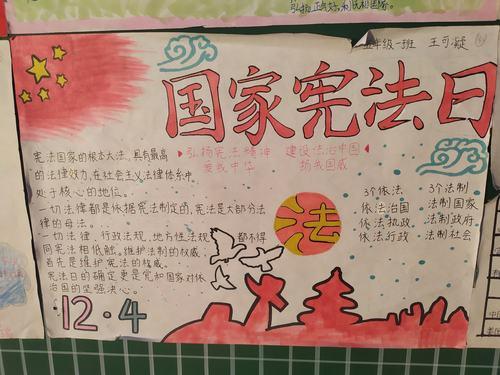 弘扬正义好,利民和国家。
五年级一班 王可凝
国家宪法日
弘扬宪法精神 建设法治中国
爱我中华 扬我国威
宪法国家的根本大法,具有最高
的法律效力,在社会主义法律体系中
处于核心的地位。
一切法律都是依据宪法制定的,宪法是大部分法
律的母法。
一切法律,行政法规,地方性法规 都不得
同宪法相低触。维护法制的权威,
首先是维护宪法的权威。
宪法日的确定更是党和国家对依
法治国的坚强决心。
法
3个依法 3个法制
依法治国 法制国家
依法执政 法制政府
依法行政 法制社会
12·4